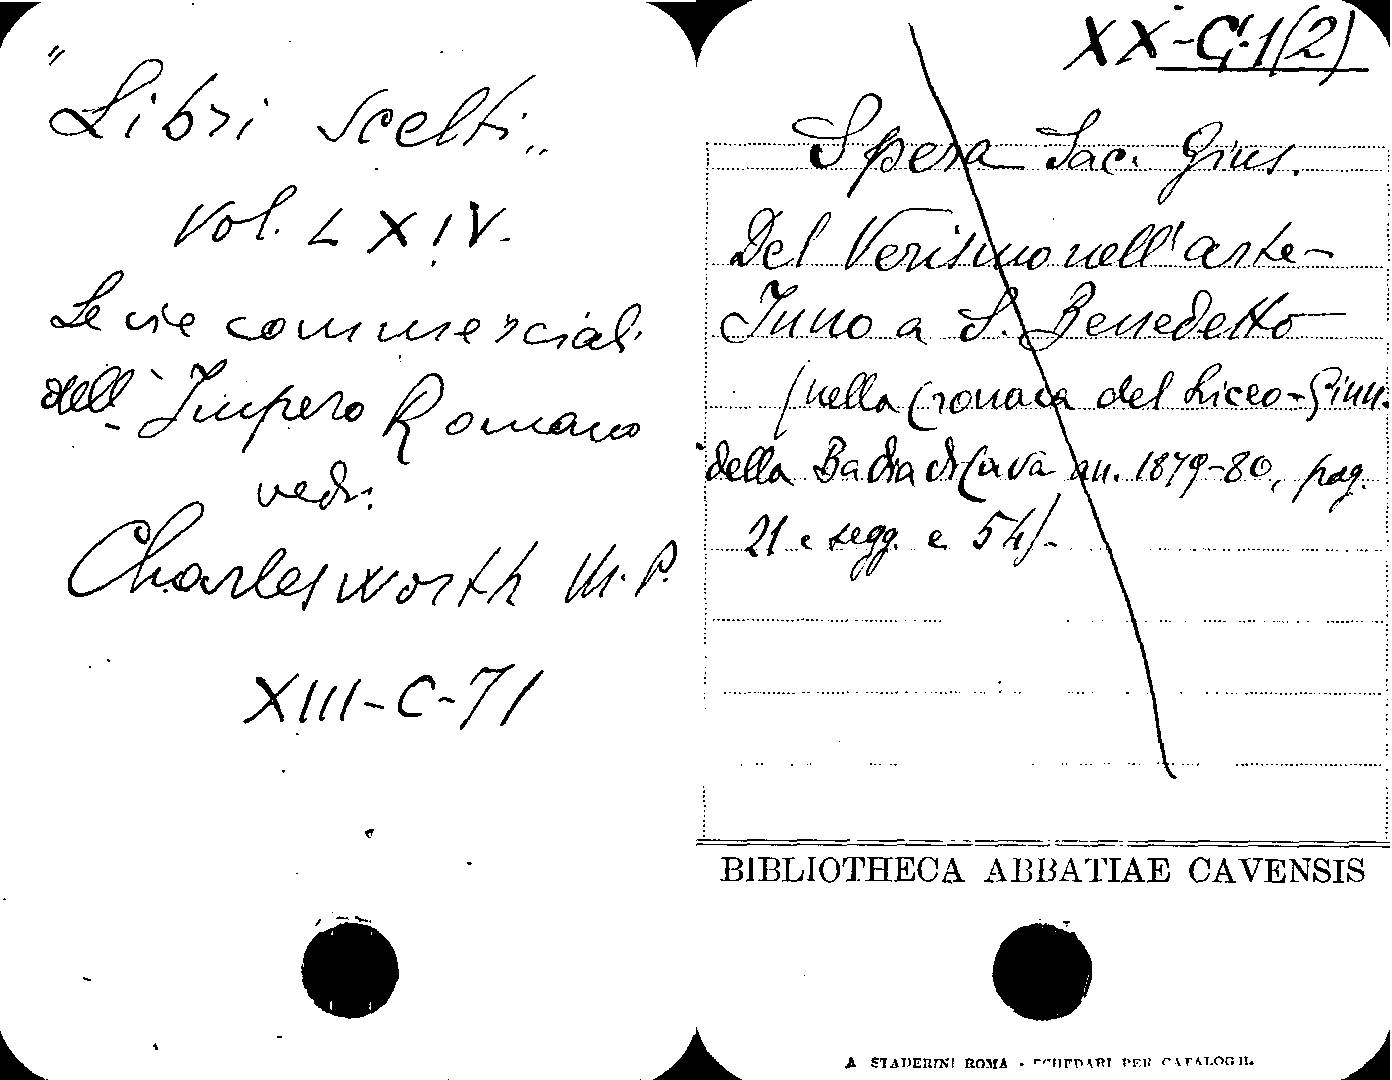 "Libri scelti„
Vol. LXIV.
Le vie commerciali
dell'Impero Romano
vedi:
Charlesworth M. P.
XIII-C-71
XX-G.1(2)
Spera Sac. Gius.
Del Verismo nell'arte-
Inno a S. Benedetto
(nella Cronaca del Liceo-Ginn.
della Badia di Cava an. 1879-80, pag.
21 e segg. e 54)-
BIBLIOTHECA ABBATIAE CAVENSIS
A STADERINI ROMA - SCHEDARI PER CATALOGHI.